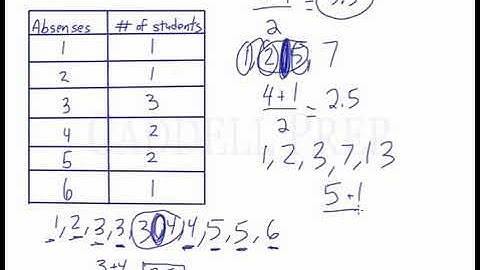 Absenses # of students
1 1
2 1
3 3
4 2
5 2
6 1
1, 2, 3, 3, 3, 4, 4, 5, 5, 6
3+4
2
1, 2, 5, 7
4+1
2 = 2.5
1, 2, 3, 7, 13
5+1
CADDELL PREP